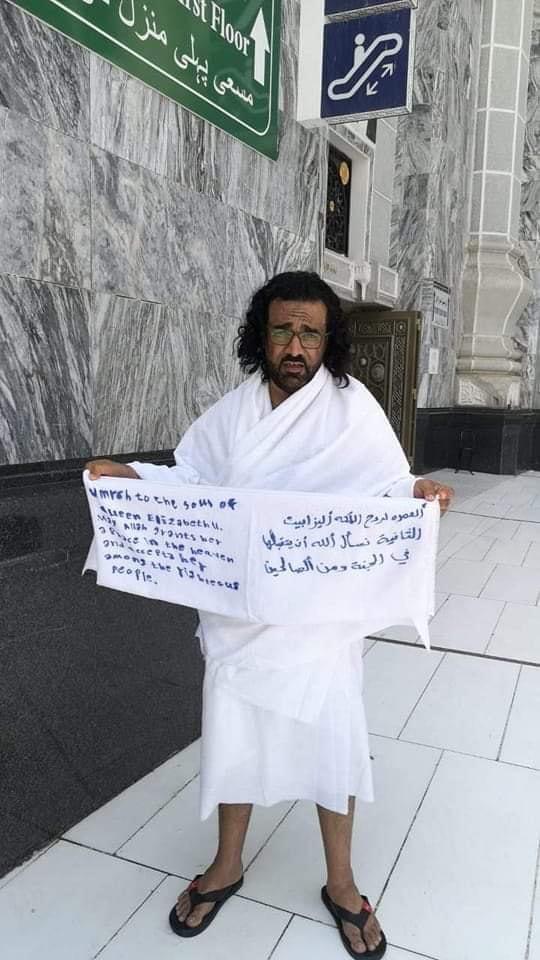 First Floor
مسعى پہلی منزل
umrah to the soul of
Queen Elizabeth II.
May Allah grants her
a place in the heaven
and accepts her
among the righteous
people.
العمره لروح الملكه أليزابيت
الثانية نسأل الله أن يتقبلها
في الجنة ومن الصالحين